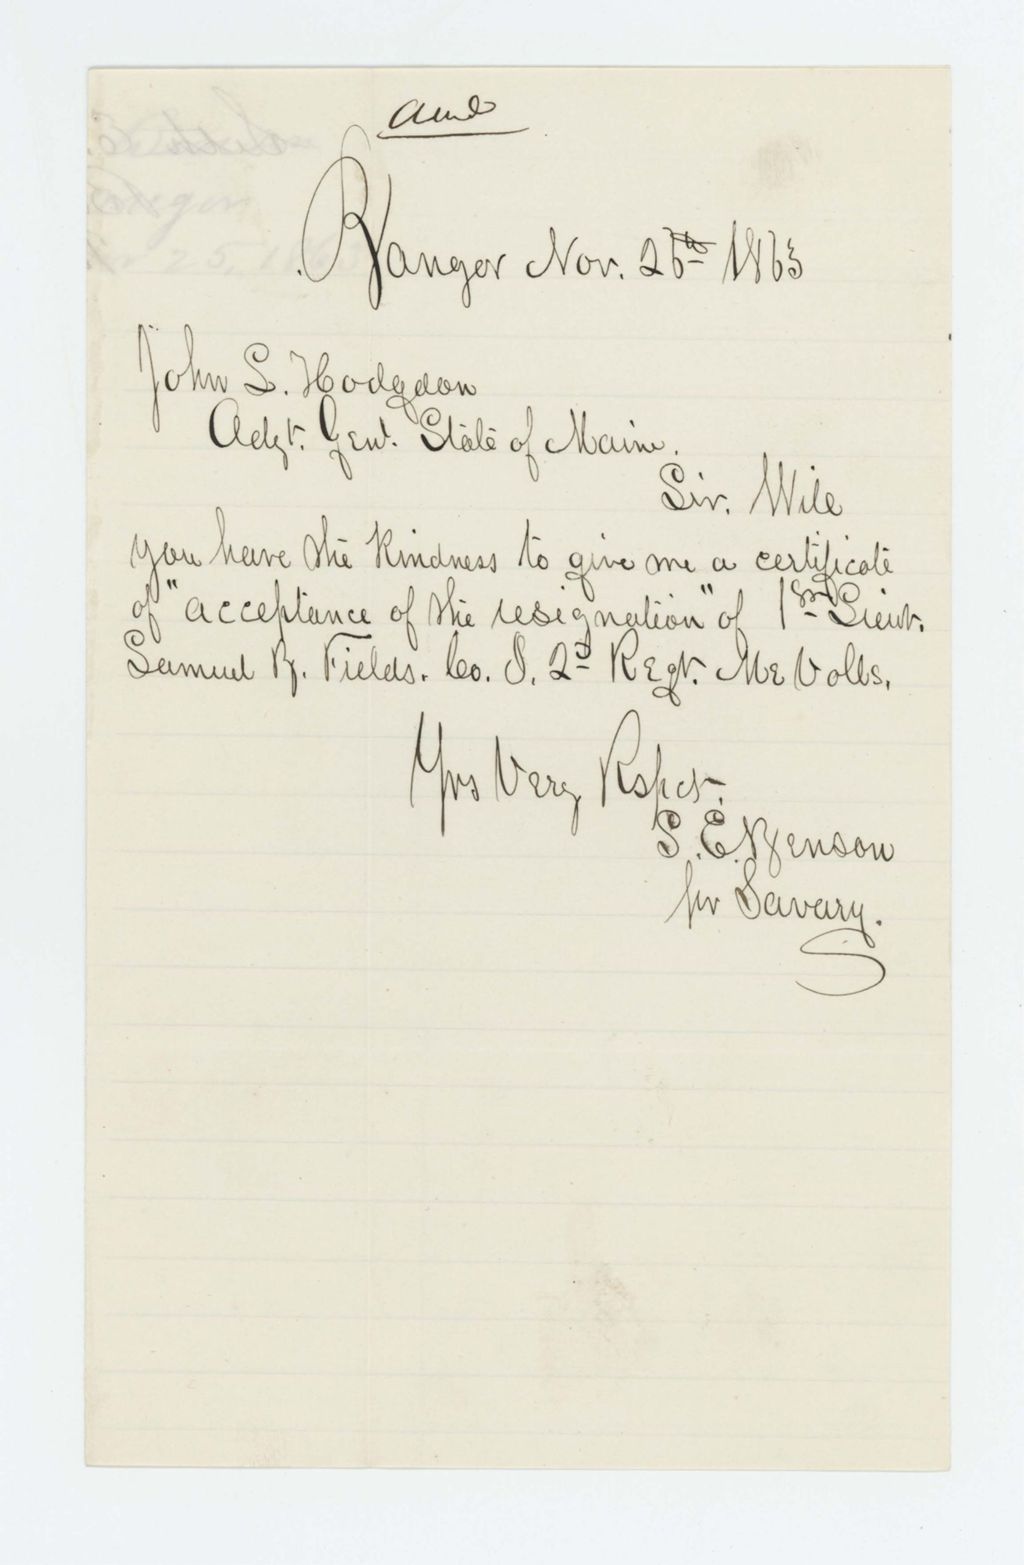 Ans
Bangor Nov. 25th 1863
John L. Hodgdon
Adgt. Genl. State of Maine.
Sir. Will
you have the kindness to give me a certificate
of "acceptance of the resignation" of 1st Lieut.
Samuel B. Fields. Co. I. 2d Regt. Me Volls.
Yrs Very Respct.
S. E. Benson
per Savary.